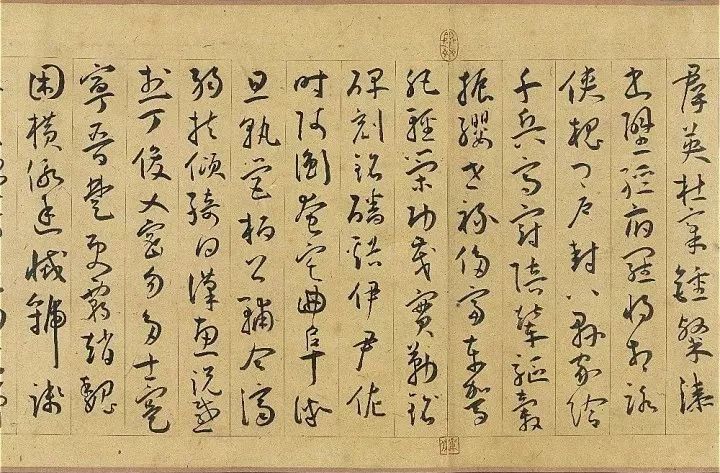 群英杜稾鍾隸漆
書壁經府羅將相路
俠槐卿戶封八縣家給
千兵高冠陪輦驅轂
振纓世祿侈富車駕
肥輕策功茂實勒銘
碑刻銘磻溪伊尹佐
時阿衡奄宅曲阜微
旦孰營桓公輔合濟
弱扶傾綺回漢惠說感
武丁俊乂密勿多士寔
寧晉楚更霸趙魏
困橫假途滅虢踐